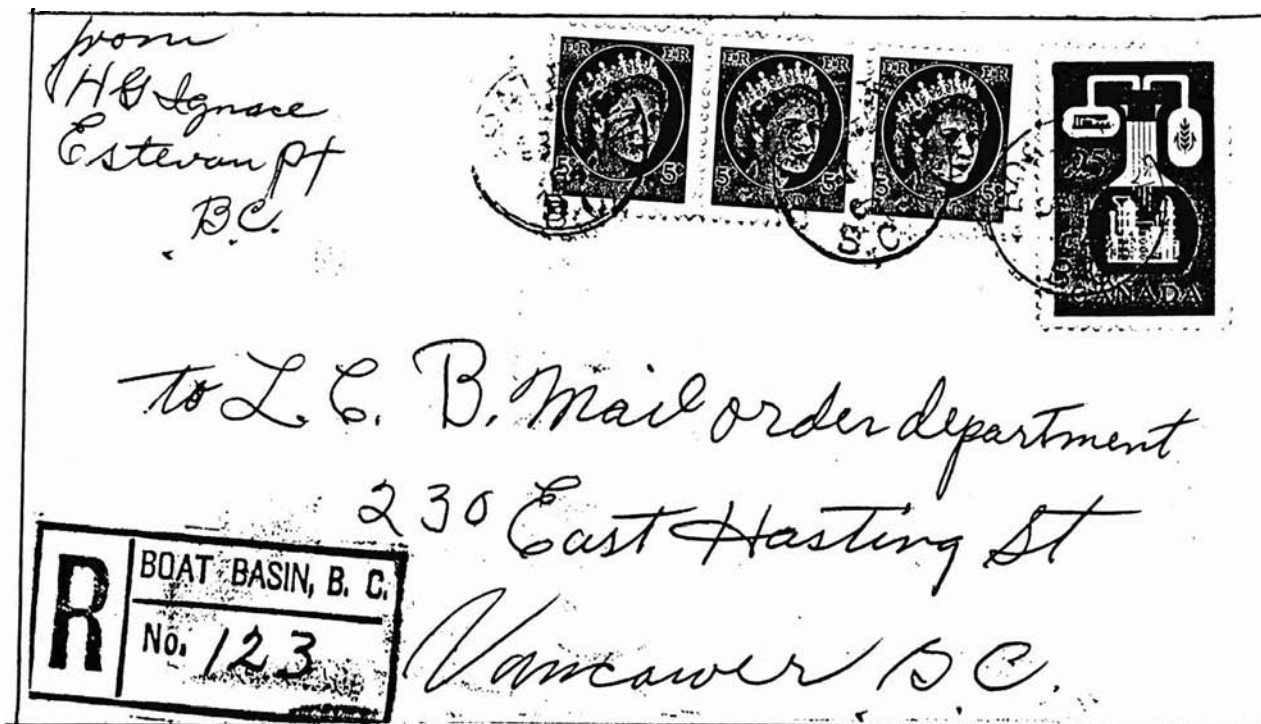 from
H G Ignace
Estevan pt
B.C.
E R E R
5¢ 5¢
E R E R
5 5¢
E R E R
5 5¢
25
CANADA
B.C.
B.C.
to L. C. B. Mail order department
230 East Hasting St
Vancouver B C.
R
BOAT BASIN, B. C.
No. 123